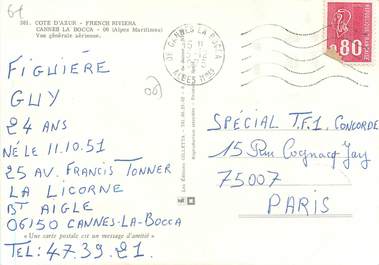 61
381. COTE D'AZUR - FRENCH RIVIERA
CANNES LA BOCCA - 06 (Alpes Maritimes)
Vue générale aérienne.
06 CANNES LA BOCCA
ALPES MMES
80
FIGUIÈRE
GUY
24 ANS
NÉ LE 11.10.51
25 AV. FRANCIS TONNER
LA LICORNE
BT AIGLE
06150 CANNES-LA-BOCCA
TEL: 47.39.21.
06
SPÉCIAL T.F.1. CONCORDE
15 Rue Cognacq-Jay
75007
PARIS
« Une carte postale est un message d'amitié »